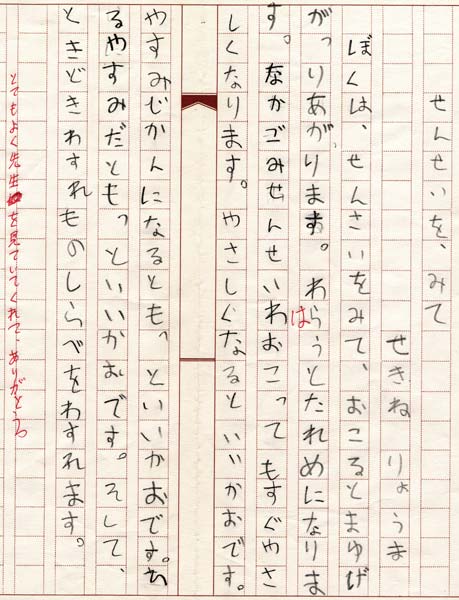 せんせいを、みて
せきね りょうま
ぼくは、せんさいをみて、おこるとまゆげ
がつりあがります。わらうとたれめになりま
す。なかごみせんせいわおこってもすぐやさ
は
しくなります。やさしくなるといいかおです。
やすみじかんになるともっといいかおです。わ
るやすみだともっといいかおです。そして、
ときどきわすれものしらべをわすれます。
とてもよく先生を見ていてくれて、ありがとう。